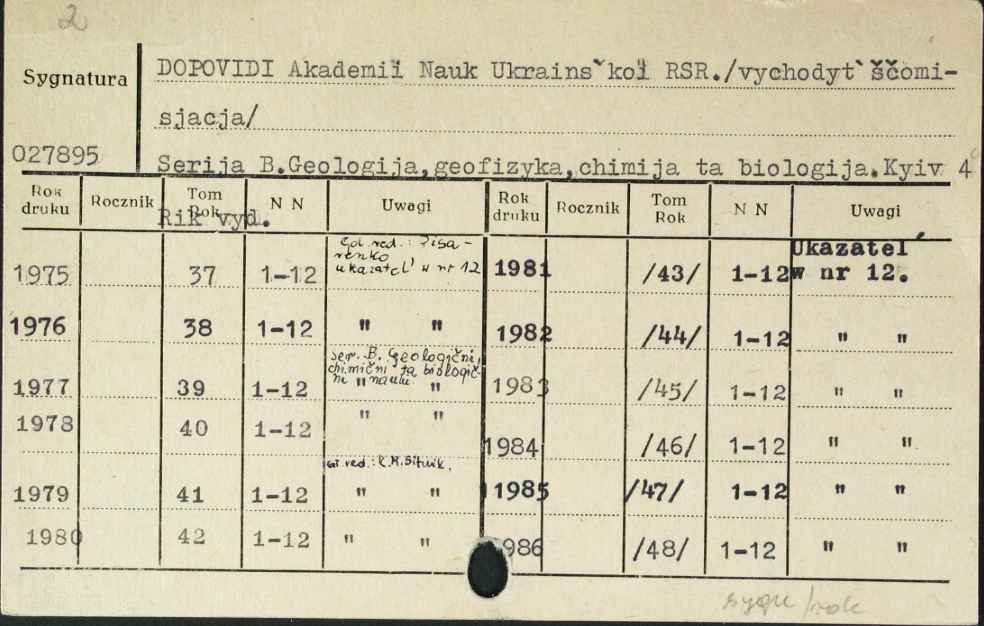 2
Sygnatura
DOPOVIDI Akademiï Nauk Ukrains`koï RSR./vychodyt` ščomi-
sjacja/
027895
Serija B.Geologija,geofizyka,chimija ta biologija.Kyiv 4°
Rok druku Rocznik Tom Rok N N Uwagi Rok druku Rocznik Tom Rok N N Uwagi
Rik vyd.
1975 37 1-12 red.: Pisa-
renko
ukazatel' w nr 12
1981 /43/ 1-12 Ukazatel´
w nr 12.
1976 38 1-12 " " 1982 /44/ 1-12 " "
ser. B. Geologični,
chimični ta biologič-
ni nauki
1977 39 1-12 " " 1983 /45/ 1-12 " "
1978 40 1-12 " " 1984 /46/ 1-12 " "
red.:
1979 41 1-12 " " 1985 /47/ 1-12 " "
1980 42 1-12 " " 986 /48/ 1-12 " "
sygn/rok